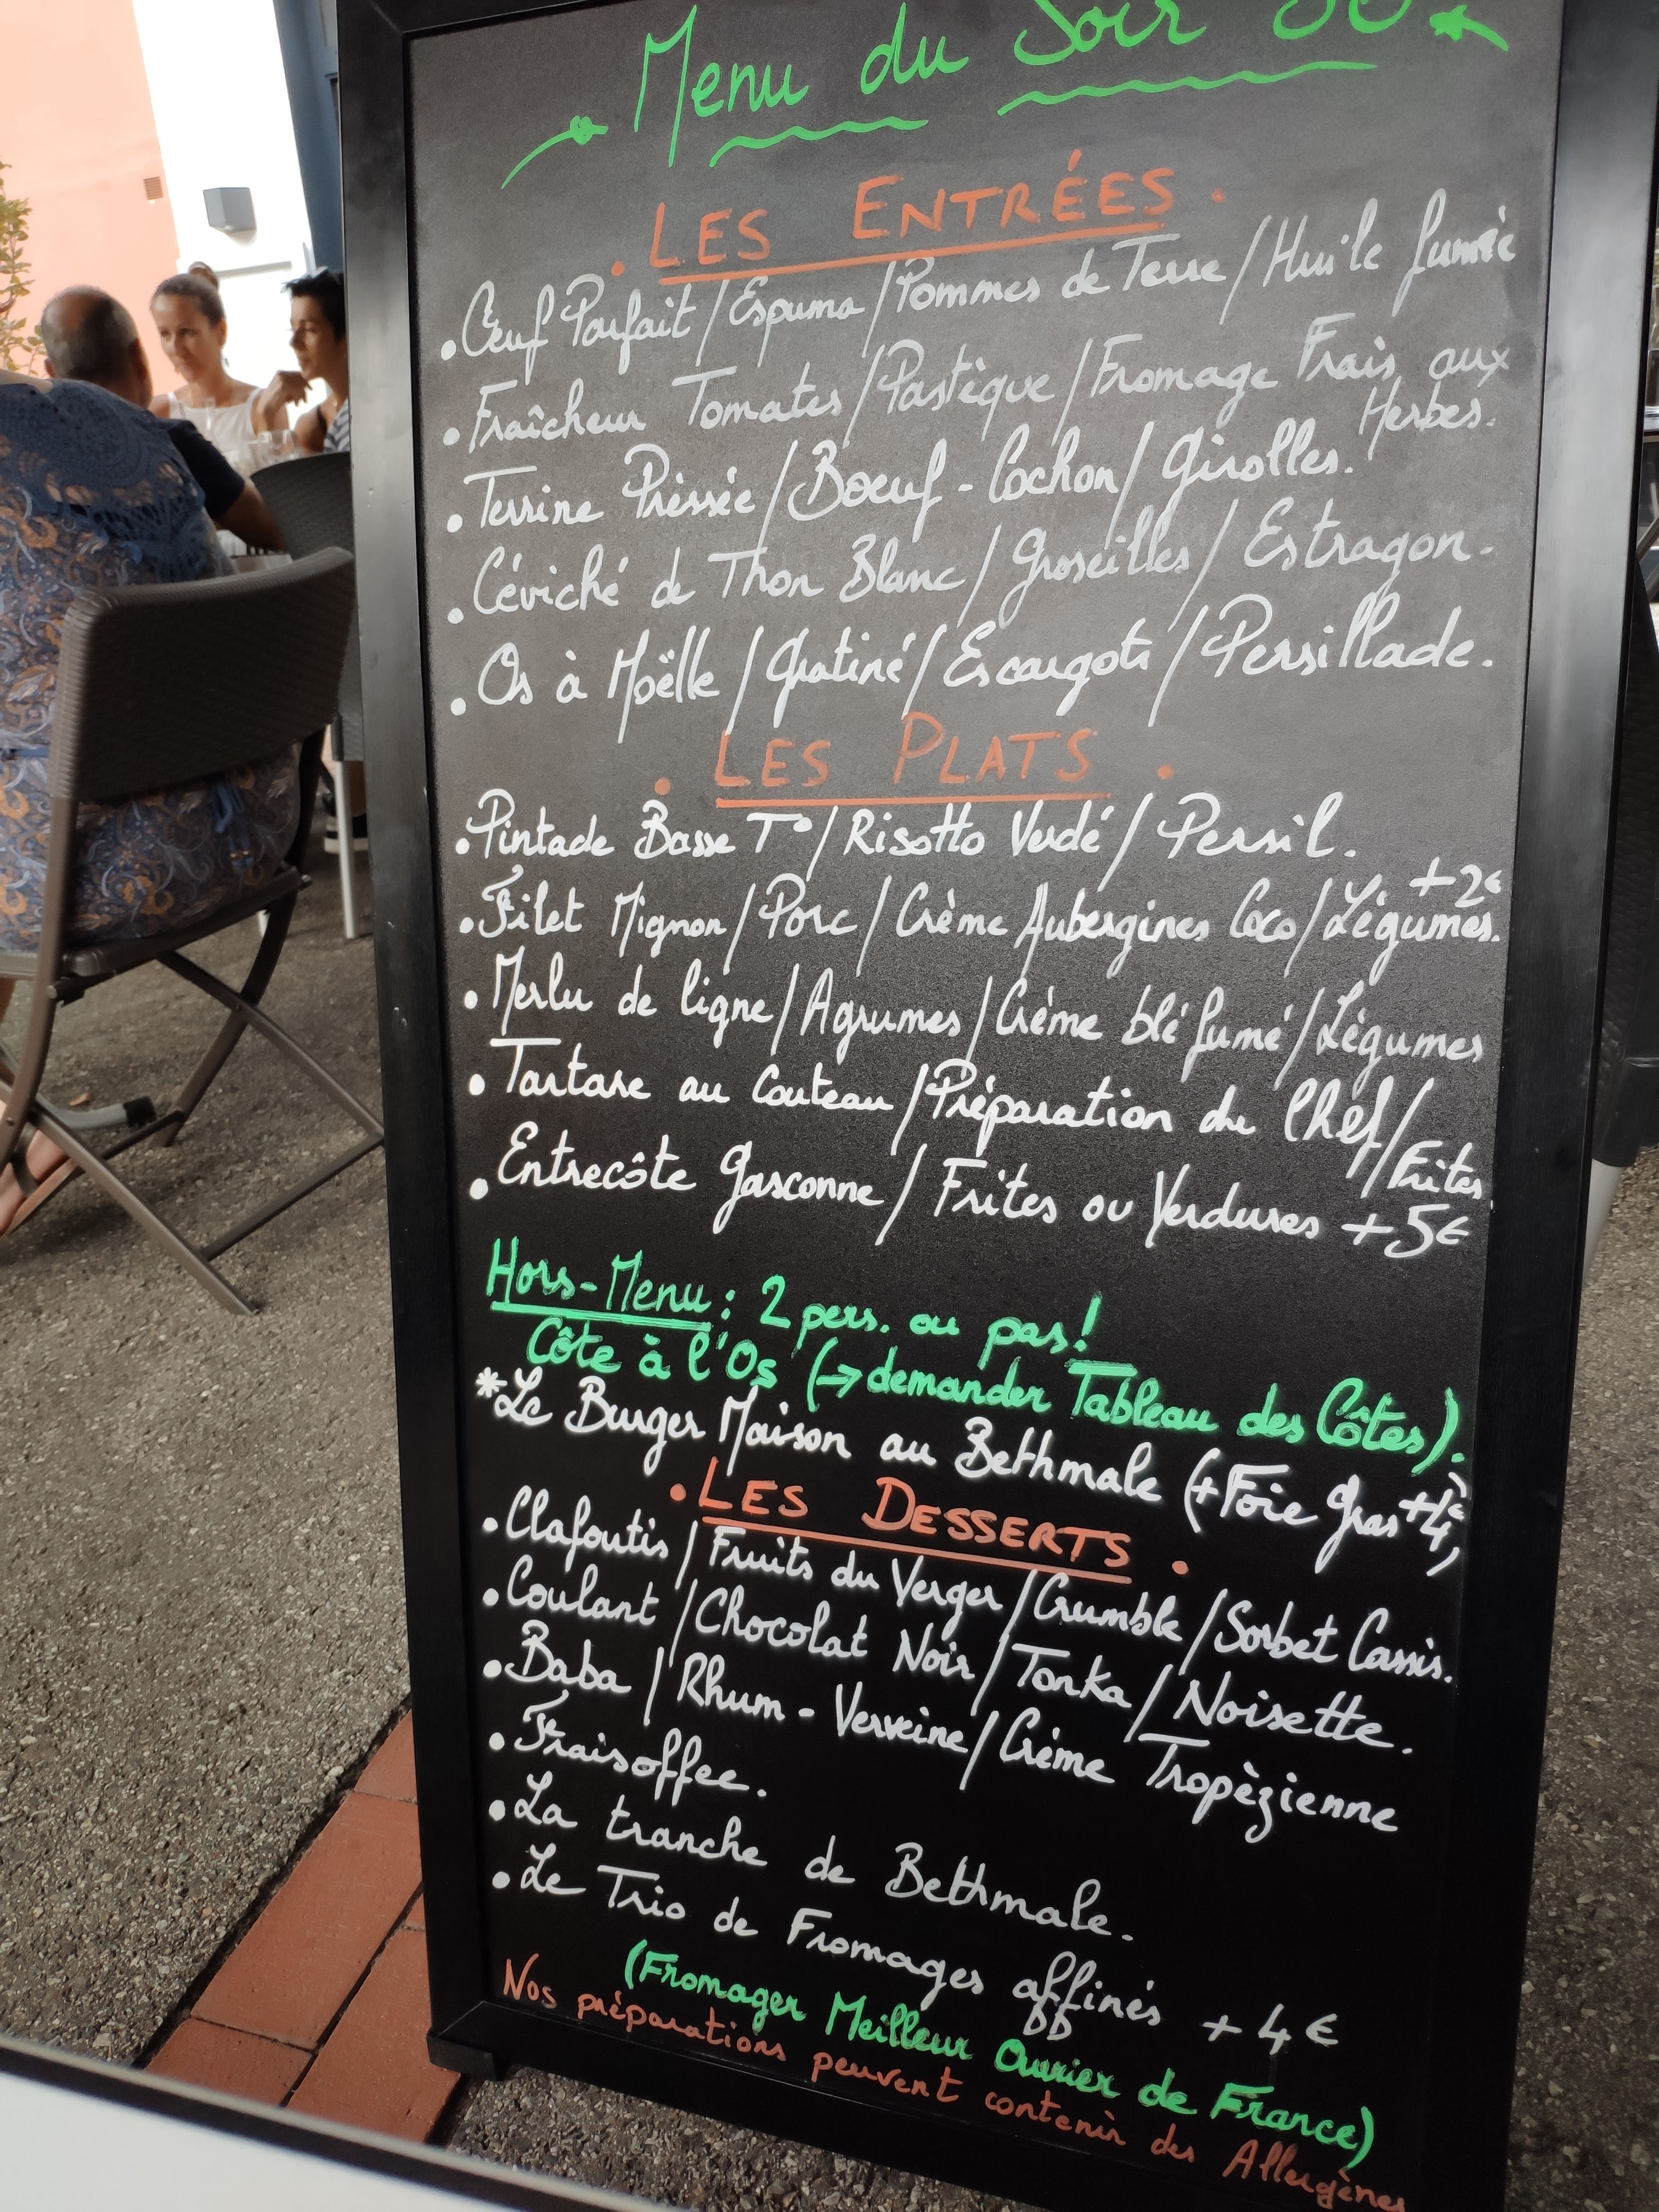 Menu du Soir
. LES ENTRÉES .
. Œuf Parfait / Espuma / Pommes de Terre / Huile fumée
. Fraîcheur Tomates / Pastèque / Fromage Frais aux
Herbes.
. Terrine Préssée / Boeuf - Cochon / Girolles.
. Céviché de Thon Blanc / Groseilles / Estragon.
. Os à Moëlle / Gratiné / Escargots / Persillade.
. LES PLATS .
. Pintade Basse T° / Risotto Verdé / Persil.
. Filet Mignon / Porc / Crème Aubergines Coco / Légumes. +2€
. Merlu de ligne / Agrumes / Crème blé fumé / Légumes
. Tartare au Couteau / Préparation du Chef / Frites
. Entrecôte Gasconne / Frites ou Verdures +5€
Hors-Menu : 2 pers. ou pas!
Côte à l'Os (→ demander Tableau des Côtes).
* Le Burger Maison au Bethmale (+ Foie Gras +4€)
. LES DESSERTS .
. Clafoutis / Fruits du Verger / Crumble / Sorbet Cassis.
. Coulant / Chocolat Noir / Tonka / Noisette.
. Baba / Rhum - Verveine / Crème Tropèzienne
. Fraisoffee.
. La tranche de Bethmale.
. Le Trio de Fromages affinés + 4€
(Fromager Meilleur Ouvrier de France)
Nos préparations peuvent contenir des Allergènes